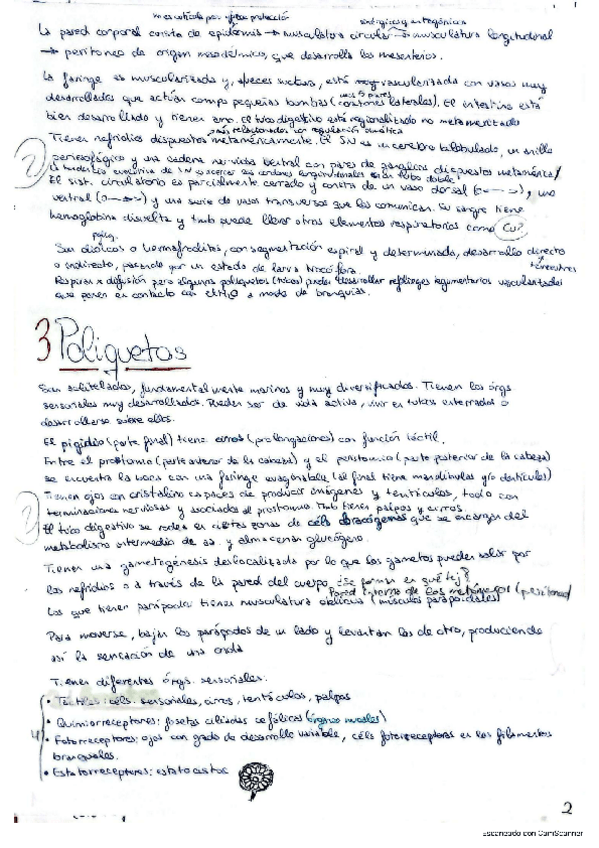 La pared corporal consta de epidermis → musculatura circular → musculatura longitudinal
→ peritoneo de origen mesodérmico, que desarrolla los mesenterios.
La faringe es muscularizada y, a veces suctora, está muy vascularizada con vasos muy
desarrollados que actúan como pequeñas bombas (corazones laterales). El intestino está
bien desarrollado y tienen ano. El tubo digestivo está regionalizado no metamerizado
Tienen nefridios dispuestos metaméricamente. El SN es un cerebro bilobulado, un anillo
periesofágico y una cadena nerviosa ventral con pares de ganglios dispuestos metamérica/
El sist. circulatorio es parcialmente cerrado y consta de un vaso dorsal, uno
ventral y una serie de vasos transversos que los comunican. Su sangre tiene
hemoglobina disuelta y tmb puede llevar otros elementos respiratorios como Cu?
Son dioicos o hermafroditas, con segmentación espiral y determinada, desarrollo directo
o indirecto, pasando por un estado de larva trocófora.
Respiran x difusión pero algunos poliquetos pueden desarrollar repliegues tegumentarios vascularizados
que ponen en contacto con el H2O a modo de branquias.
3 Poliquetos
Son fundamentalmente marinos y muy diversificados. Tienen los órgs
sensoriales muy desarrollados. Pueden ser de vida activa, vivir en tubos enterrados o
desarrollarse sobre ellos.
El pigidio (parte final) tiene cirros (prolongaciones) con función táctil.
Entre el prostomio (parte anterior de la cabeza) y el peristomio (parte posterior de la cabeza)
se encuentra la boca con una faringe evaginable (al final tiene mandíbulas y/o dentículos)
Tienen ojos con cristalino capaces de producir imágenes y tentáculos, todo con
terminaciones nerviosas y asociados al prostomio. Tmb tienen palpos y cirros.
El tubo digestivo se rodea en ciertas zonas de céls cloragógenas que se encargan del
metabolismo intermedio de aa. y almacenan glucógeno.
Tienen una gametogénesis deslocalizada por lo que los gametos pueden salir por
los nefridios o a través de la pared del cuerpo ¿Se forman en qué tej?
Pared interna de los metámeros (peritoneo)
Los que tienen parápodos tienen musculatura oblicua (músculos parapodiales)
Para moverse, bajan los parápodos de un lado y levantan los de otro, produciendo
así la sensación de una onda
Tienen diferentes órgs. sensoriales:
• Táctiles: céls. sensoriales, cirros, tentáculos, palpos
• Quimiorreceptores: fosetas ciliadas cefálicas (órganos nucales)
• Fotorreceptores: ojos con grado de desarrollo variable, céls fotorreceptoras en los filamentos
branquiales.
• Estatorreceptores: estatocistos
2
Escaneado con CamScanner